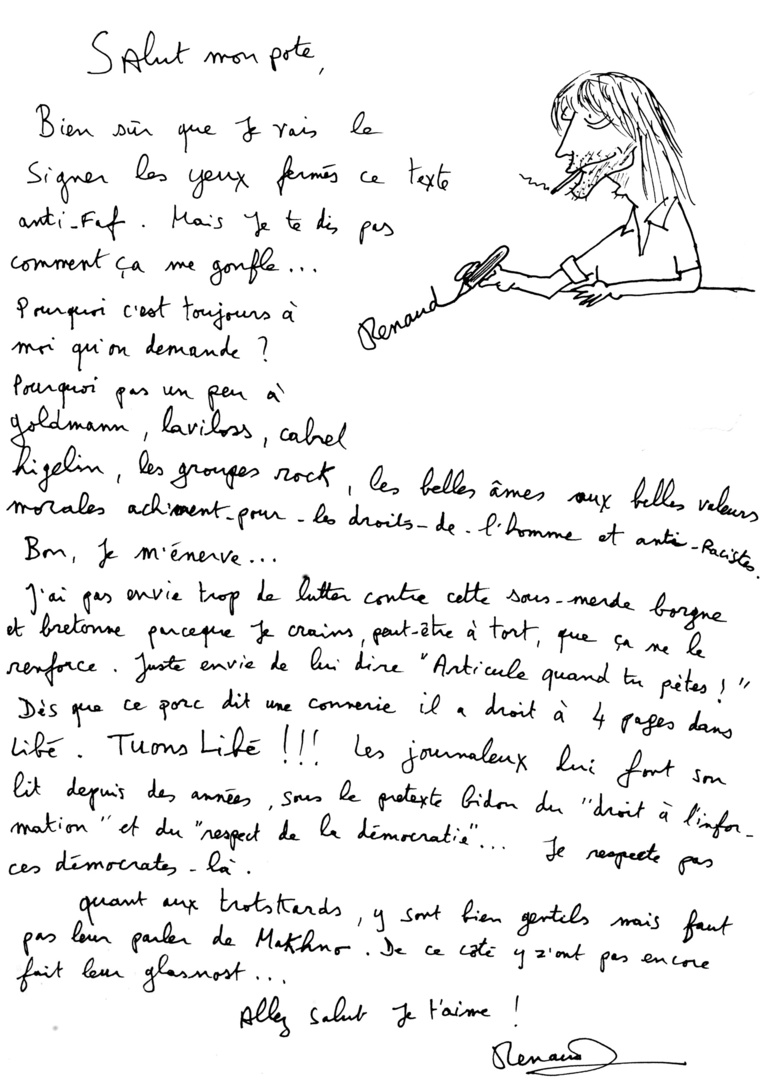 Salut mon pote,
Bien sûr que Je vais le
Signer les yeux fermés ce texte
anti-Faf. Mais Je te dis pas
comment ça me gonfle...
Renaud
Pourquoi c'est toujours à
moi qu'on demande ?
Pourquoi pas un peu à
goldmann, laviloss, cabrel
higelin, les groupes rock, les belles âmes aux belles valeurs
morales achiment-pour-les droits-de-l'homme et anti-Racistes.
Bon, Je m'énerve...
J'ai pas envie trop de lutter contre cette sous-merde borgne
et bretonne parceque Je crains, peut-être à tort, que ça ne le
renforce. Juste envie de lui dire "Articule quand tu pètes !"
Dès que ce porc dit une connerie il a droit à 4 pages dans
Libé. Tuons Libé !!! Les journaleux lui font son
lit depuis des années, sous le pretexte bidon du "droit à l'infor-
mation" et du "respect de la démocratie"... Je respecte pas
ces démocrates-là.
quant aux trotskards, y sont bien gentils mais faut
pas leur parler de Makhno. De ce côté y z'ont pas encore
fait leur glasnost...
Allez salut Je t'aime !
Renaud